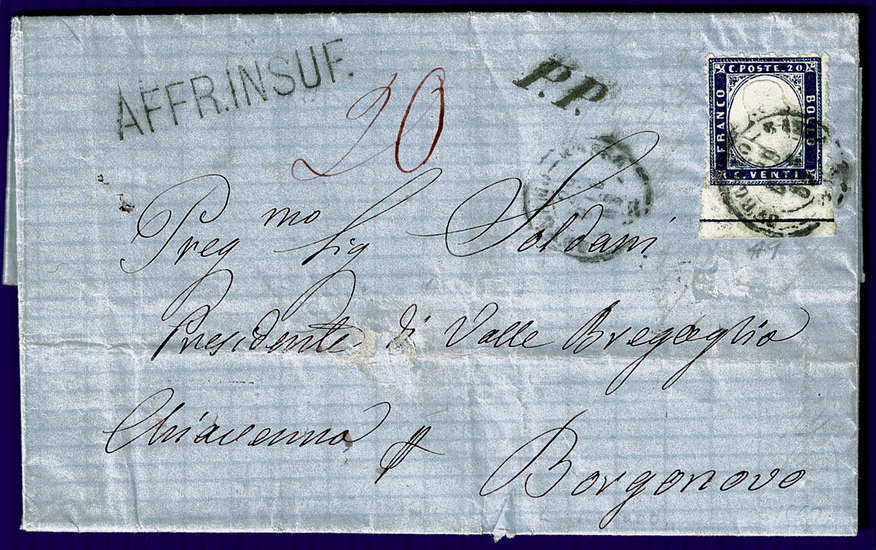 AFFR.INSUF.
20
P.P.
C. POSTE. 20
FRANCO
BOLLO
C. VENTI
Preg mo Sig Soldani
Presidente di Valle Bregaglia
Chiavenna pr
Borgonovo